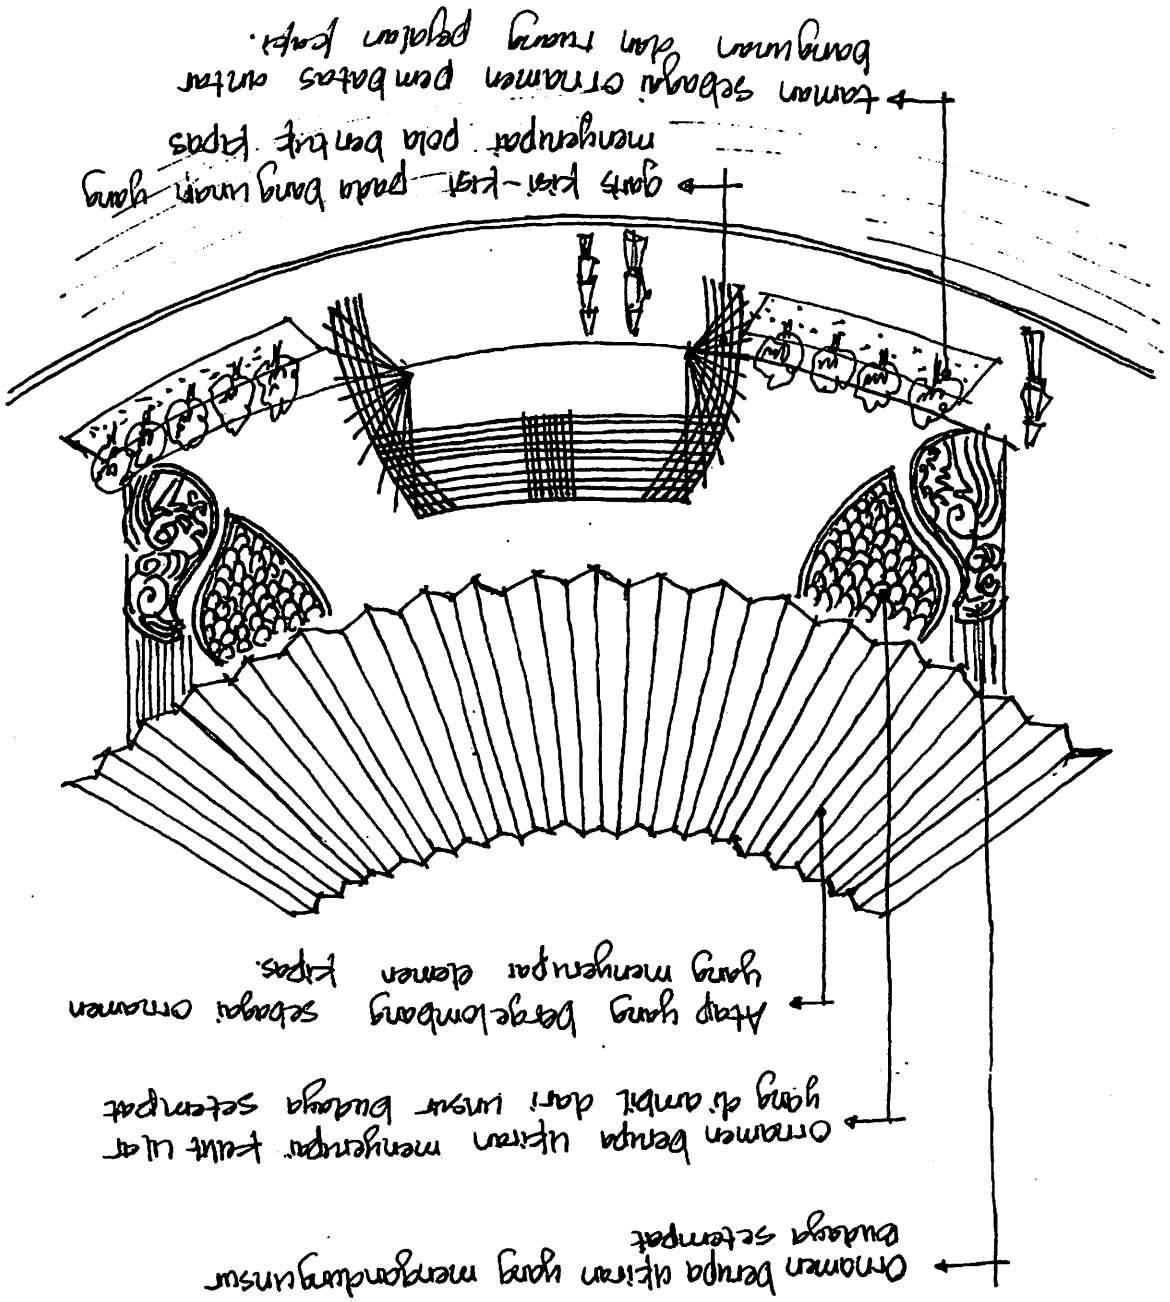 Ornamen berupa ukiran yang mengandung unsur
budaya setempat
Ornamen berupa ukiran menyerupai kulit ular
yang di ambil dari unsur budaya setempat
Atap yang bergelombang sebagai ornamen
yang menyerupai elemen kipas.
garis kisi-kisi pada bangunan yang
menyerupai pola bentuk kipas
taman sebagai ornamen pembatas antar
bangunan dan ruang pejalan kaki.